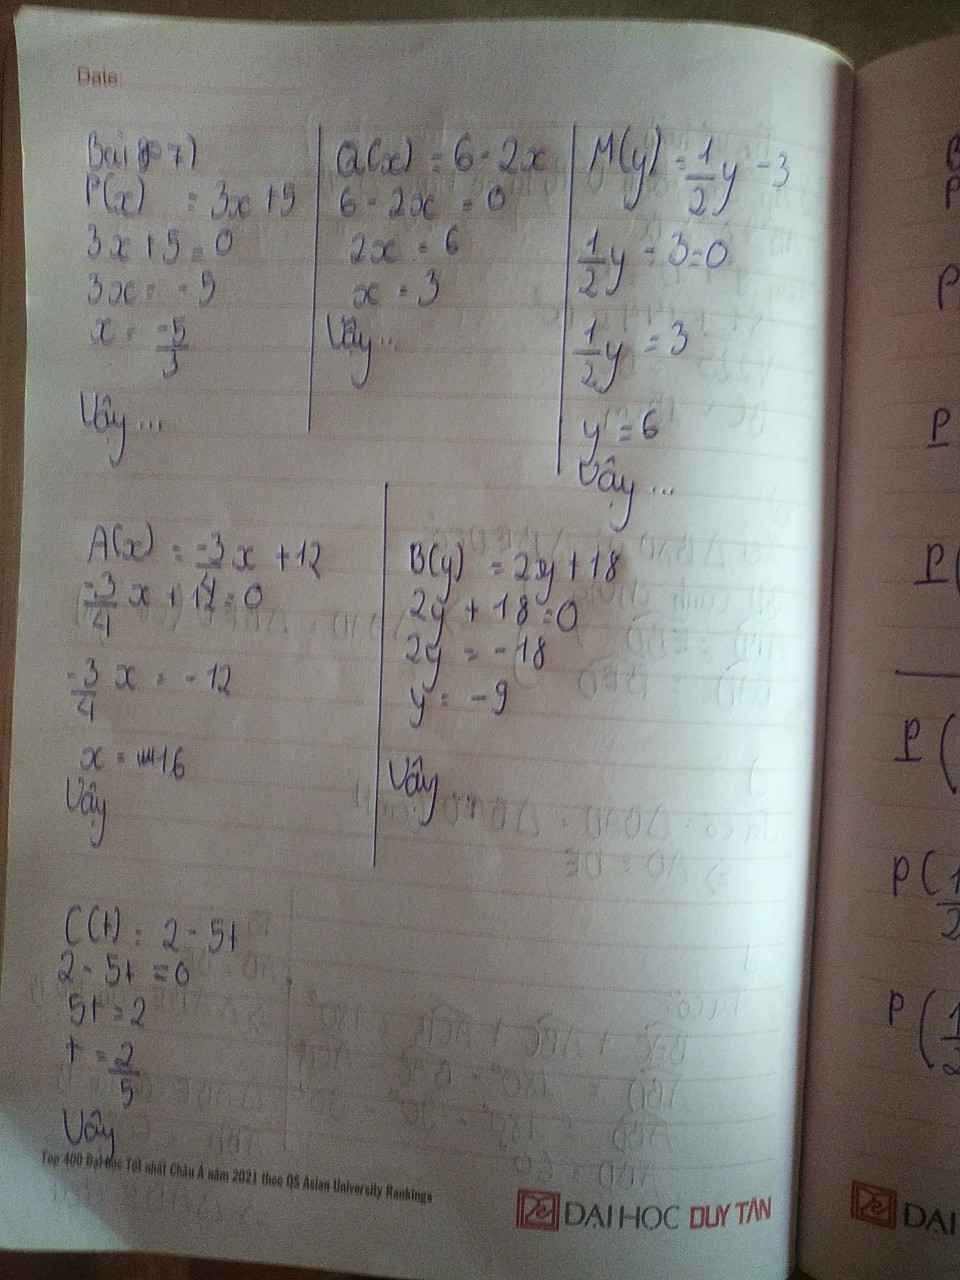 Date:
Bài 7)
P(x) = 3x + 5
3x + 5 = 0
3x = -5
x = -5/3
Vậy ...
Q(x) = 6 - 2x
6 - 2x = 0
2x = 6
x = 3
Vậy ...
M(y) = 1/2 y - 3
1/2 y - 3 = 0
1/2 y = 3
y = 6
Vậy ...
A(x) = -3/4 x + 12
-3/4 x + 12 = 0
-3/4 x = -12
x = 16
Vậy
B(y) = 2y + 18
2y + 18 = 0
2y = -18
y = -9
Vậy ...
C(t) = 2 - 5t
2 - 5t = 0
5t = 2
t = 2/5
Vậy
Top 400 Đại học Tốt nhất Châu Á năm 2021 theo QS Asian University Rankings
ĐẠI HỌC DUY TÂN
P
P
P
P(
P(
P(1/2
P(1/2
ĐẠI